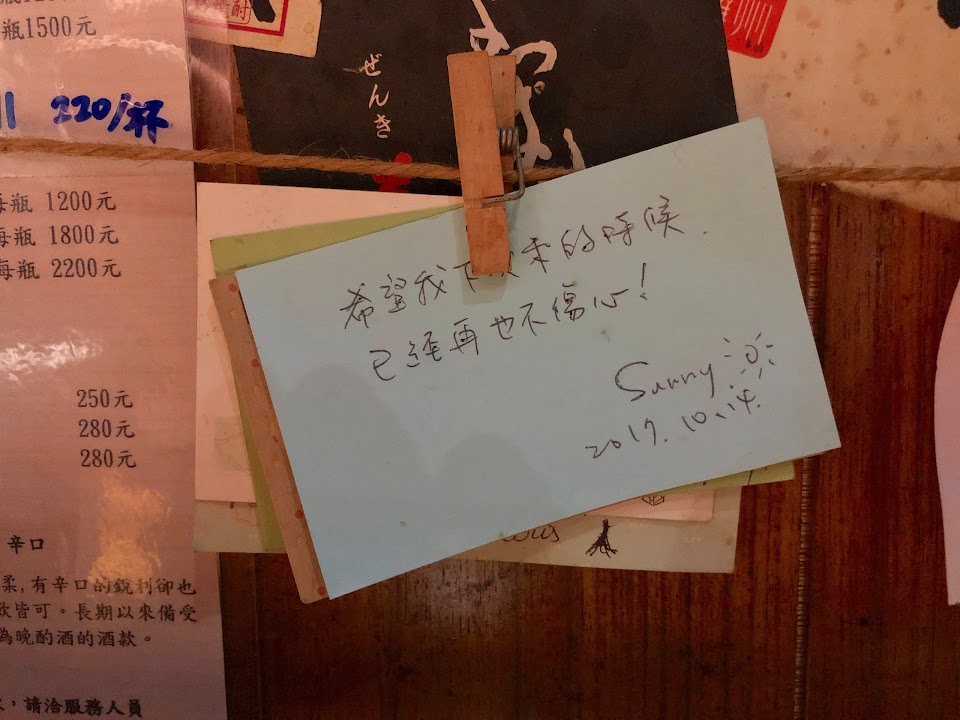 瓶1500元
220/杯
每瓶 1200元
每瓶 1800元
每瓶 2200元
250元
280元
280元
辛口
柔,有辛口的銳利卻也
飲皆可。長期以來備受
為晚酌酒的酒款。
,請洽服務人員
ぜんき
希望我下次來的時候.
已經再也不傷心!
Sunny
2017.10.14.